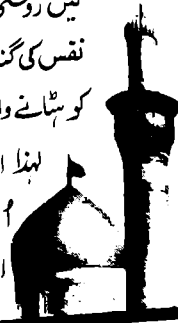 میں روشنی
نفس کی گند
کو ہٹانے وا
لہذا ا
اُ
ا